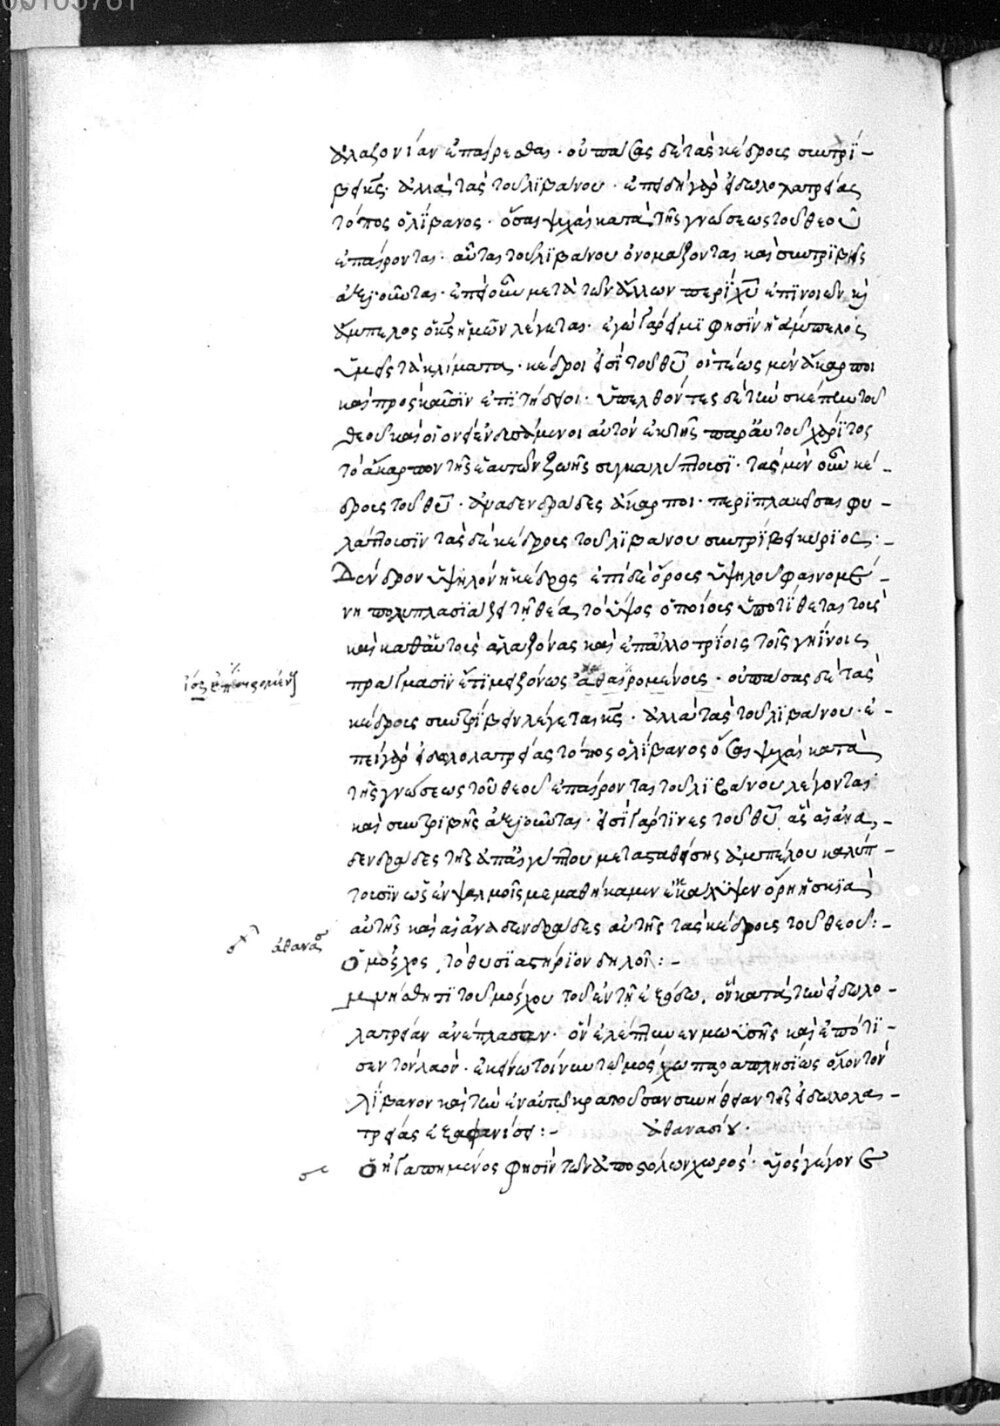 00105761
ἀλαζονίαν ἐπαίρεσθαι· οὐ πάσας δὲ τὰς κέδρους συντρί-
βει κ̅ς̅· ἀλλὰ τὰς τοῦ λιβάνου· ἐπειδὴ γὰρ εἰδωλολατρείας
τόπος ὁ λίβανος· ὅσαι ψυχαὶ κατὰ τῆς γνώσεως τοῦ θεοῦ
ἐπαίρονται· αὗται τοῦ λιβάνου ὀνομάζονται καὶ συντριβῆς
ἀξιοῦνται· ἐπεὶ οὖν μετὰ τῶν ἄλλων περὶ χ̅υ̅ ἐπινοιῶν κ(αὶ)
ἄμπελος ὁ κ̅ς̅ ἡμῶν λέγεται· ἐγὼ γάρ εἰμι φησὶν ἡ ἄμπελος
ὑμεῖς τὰ κλήματα· κέδροι εἰσὶ τοῦ θ̅υ̅ οἱ τέως μὲν ἄκαρποι
καὶ πρὸς καῦσιν ἐπιτήδειοι· ὑπελθόντες δὲ τὴν σκέπην τοῦ
θεοῦ καὶ οἱονεὶ ἐνδυσάμενοι αὐτὸν ἐκ τῆς παρ' αὐτοῦ χάριτος
τὸ ἄκαρπον τῆς ἑαυτῶν ζωῆς συγκαλύπτουσι· τὰς μὲν οὖν κέ-
δρους τοῦ θ̅υ̅· ἀναδενδράδες ἄκαρποι· περιπλακεῖσαι φυ-
λάττουσιν τὰς δὲ κέδρους τοῦ λιβάνου συντρίβει κύριος:-
Δένδρον ὑψηλὸν ἡ κέδρος ἐπὶ δὲ ὄρους ὑψηλοῦ φαινομέ-
νη πολυπλασιάζει τῇ θέᾳ τὸ ὕψος ὁποίους ὑποτίθεται τοὺς
καὶ καθ' αὑτοὺς ἀλαζόνας καὶ ἐπ' ἀλλοτρίοις τοῖς γηΐνοις
πράγμασιν ἔτι μειζόνως ἀθαιρομένοις· οὐ πάσας δὲ τὰς
κέδρους συντρίβειν λέγεται κ̅ς̅· ἀλλὰ τὰς τοῦ λιβάνου· ἐ-
πεὶ γὰρ εἰδωλολατρείας τόπος ὁ λίβανος ὅσαι ψυχαὶ κατὰ
τῆς γνώσεως τοῦ θεοῦ ἐπαίρονται τοῦ λιβάνου λέγονται
καὶ συντριβῆς ἀξιοῦνται· εἰσὶ γάρ τινες τοῦ θ̅υ̅ ἃς αἱ ἀνα-
δενδράδες τῆς ἀπ' αἰγύπτου μεταταθείσης ἀμπέλου καλύπ-
τουσιν ὡς ἐν ψαλμοῖς μεμαθήκαμεν ἐκάλυψεν ὄρη ἡ σκιὰ
αὐτῆς καὶ αἱ ἀναδενδράδες αὐτῆς τὰς κέδρους τοῦ θεοῦ:-
ἀθανασ
Ὁ μόσχος τὸ θυσιαστήριον δηλοῖ:-
μέμνησθητι τοῦ μόσχου τοῦ ἐν τῇ ἐξόδω, ὃν κατὰ τὴν εἰδωλο-
λατρείαν ἀνέπλασαν· ὃν ἐλέπτυνεν μωϋσῆς καὶ ἐπότι-
σεν τὸν λαόν· ἐκείνω τοίνυν τῶ μόσχω παραπλησίως ὅλον τὸν
λίβανον καὶ τὴν ἐν αὐτῶ κρατοῦσαν συνήθειαν τῆς εἰδωλολα-
τρείας ἐξαφανίσει:- ἀθανασίου·
Ὁ ἠγαπημένος φησὶν τῶν ἀποστόλων χορὸς· υἱὸς γέγονε